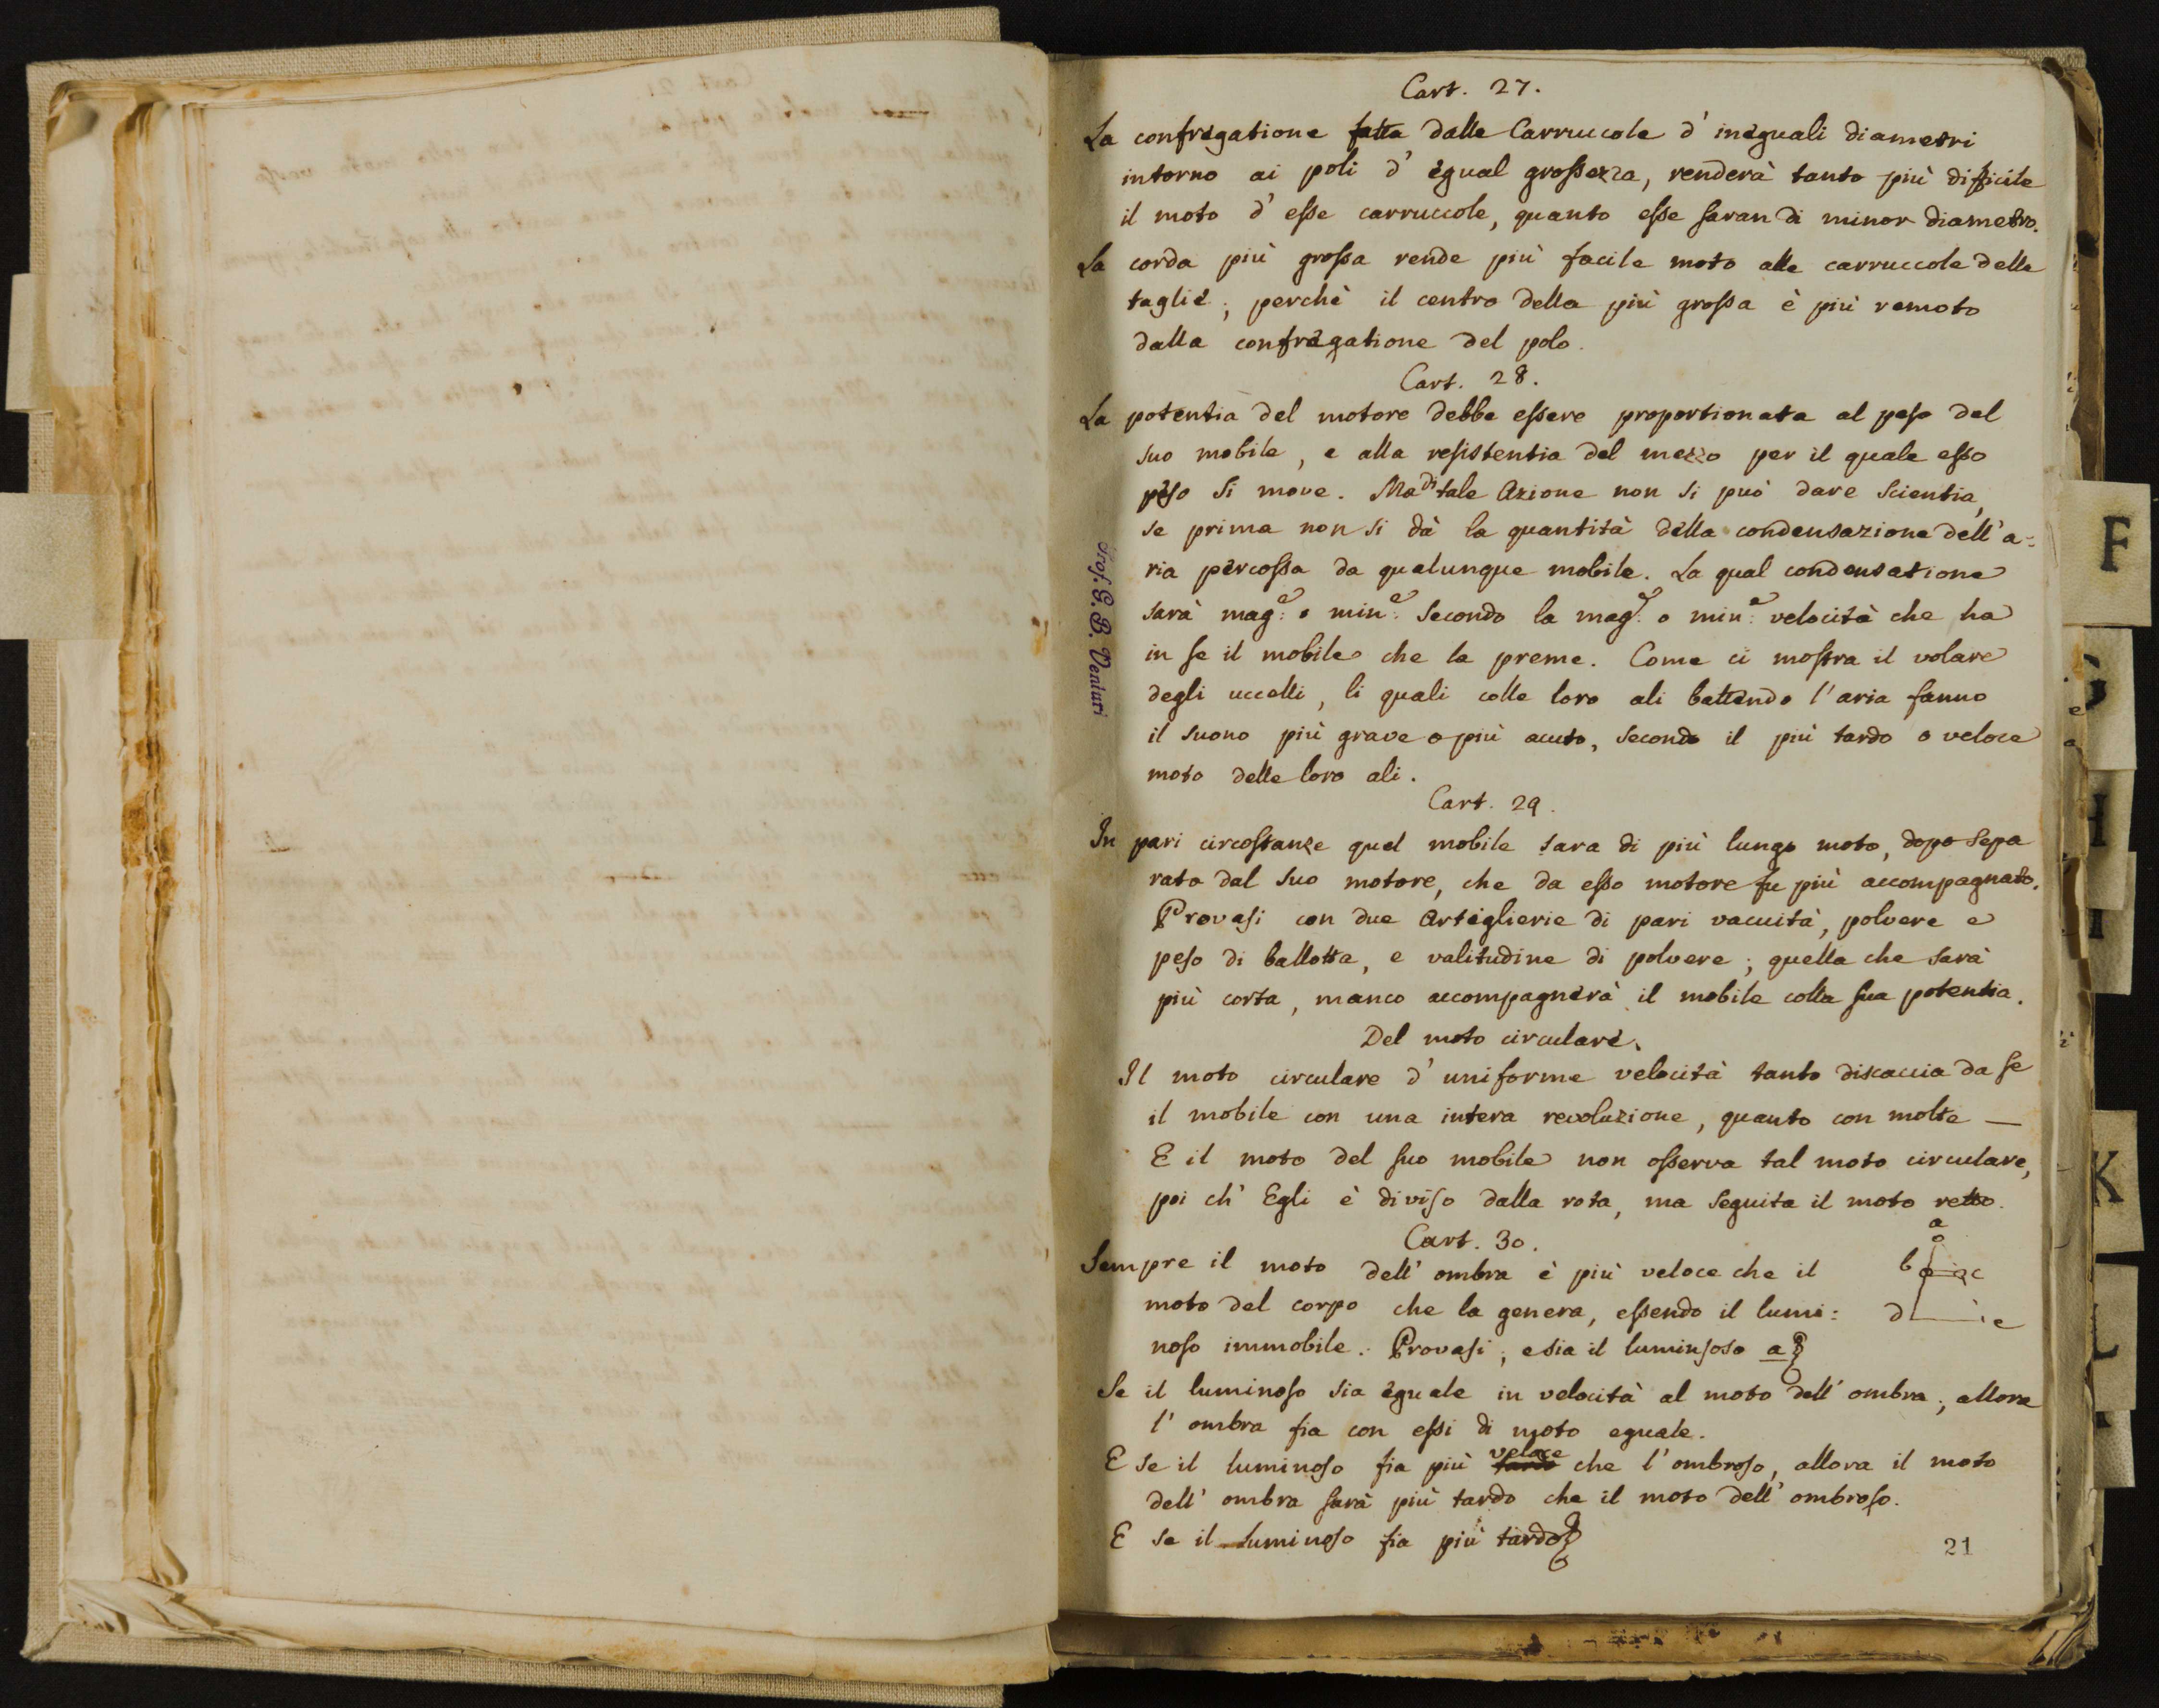 Cart. 27.
La confregatione fatta dalle Carruccole d' ineguali diametri
intorno ai poli d' egual grossezza, renderà tanto più difficile
il moto d' esse carruccole, quanto esse saran di minor diametro.
La corda più grossa rende più facile moto alle carruccole delle
taglie; perchè il centro della più grossa è più remoto
dalla confregatione del polo.
Cart. 28.
La potentia del motore debbe essere proportionata al peso del
suo mobile, e alla resistentia del mezzo per il quale esso
peso si move. Ma di tale Azione non si può dare scientia,
se prima non si dà la quantità della condensazione dell' a=
ria percossa da qualunque mobile. La qual condensatione
sarà mag:e o min:e secondo la mag:e o min:e velocità che ha
in se il mobile che la preme. Come ci mostra il volare
degli uccelli, li quali colle loro ali battendo l' aria fanno
il suono più grave o più acuto, secondo il più tardo o veloce
moto delle loro ali.
Cart. 29.
In pari circostanze quel mobile sara di più lungo moto, dopo sepa
rato dal suo motore, che da esso motore fu più accompagnato.
Provasi con due Artiglierie di pari vacuità, polvere e
peso di ballotta, e valitudine di polvere; quella che sarà
più corta, manco accompagnerà il mobile colla sua potentia.
Del moto circulare.
Il moto circulare d' uniforme velocità tanto discaccia da se
il mobile con una intera revoluzione, quanto con molte —
E il moto del suo mobile non osserva tal moto circulare,
poi ch' Egli è diviso dalla rota, ma seguita il moto retto.
Cart. 30.
Sempre il moto dell' ombra è più veloce che il
moto del corpo che la genera, essendo il lumi:
noso immobile. Provasi; e sia il luminsoso a
a
b c
d e
Se il luminoso sia eguale in velocità al moto dell' ombra; allora
l' ombra fia con essi di moto eguale.
E se il luminoso fia più tardo veloce che l' ombroso, allora il moto
dell' ombra sarà più tardo che il moto dell' ombroso.
E se il luminoso fia più tardo
21
Prof. G. B. Venturi
F
G
H
I
K
L